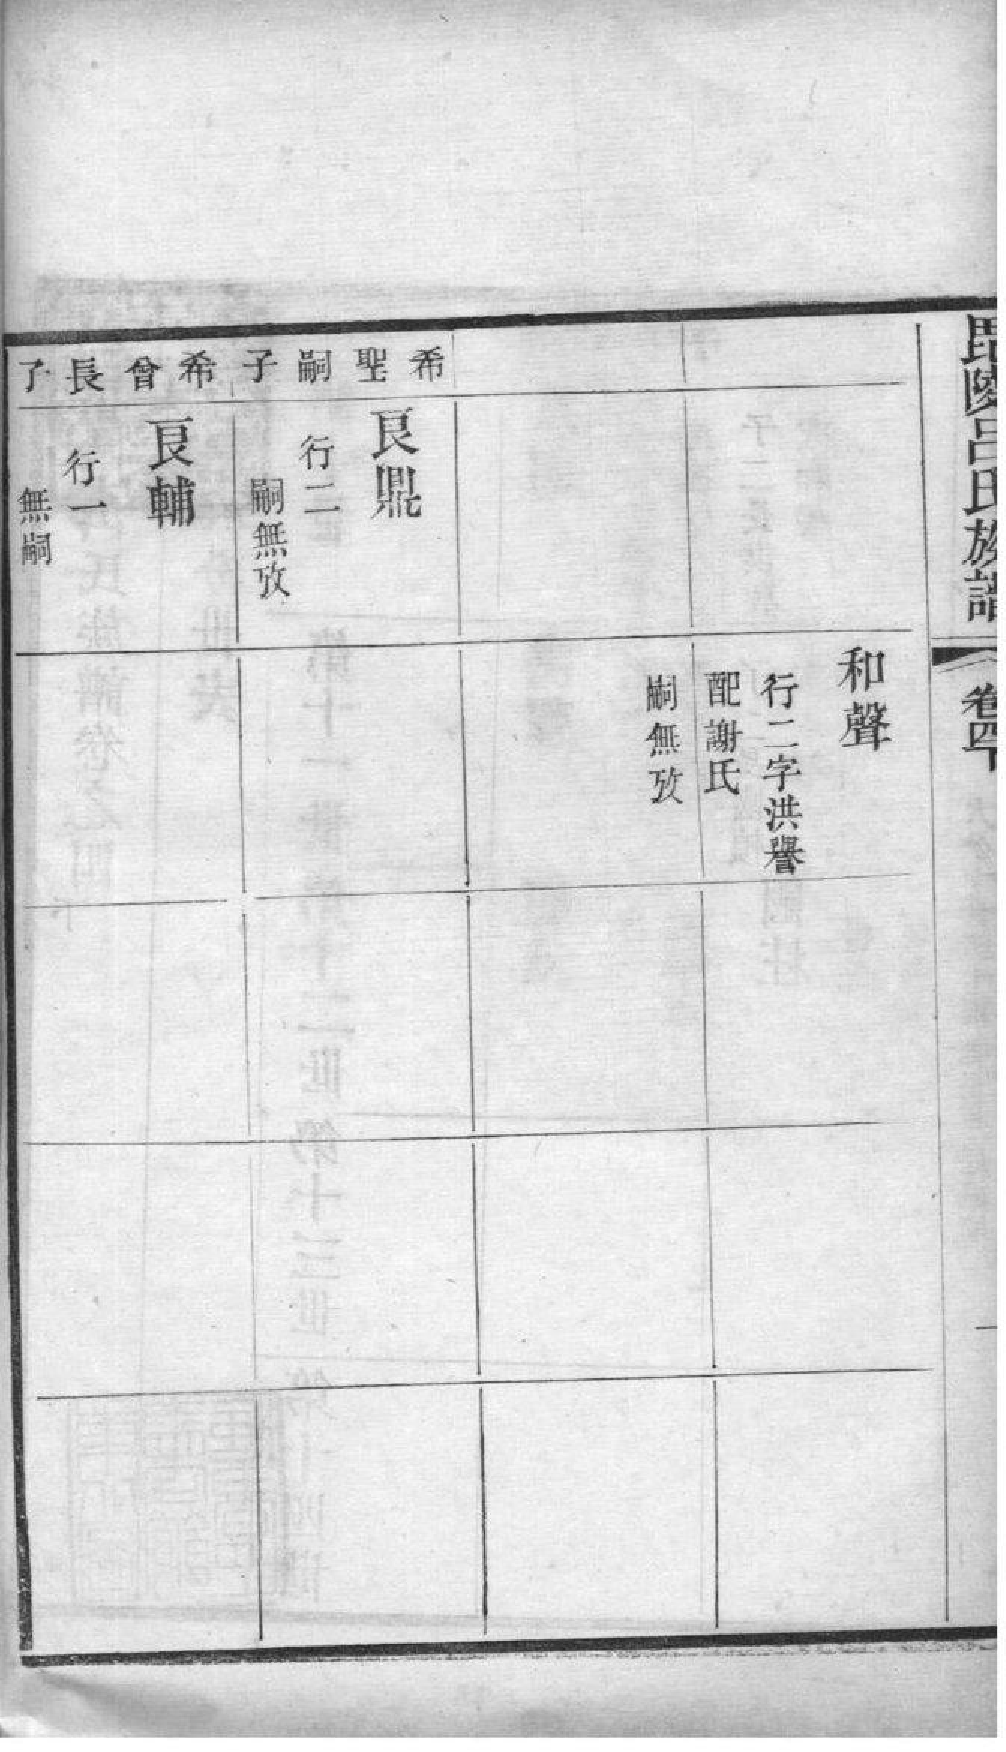 毘陵呂氏族譜 卷四下
和聲
行二字洪譽
配謝氏
嗣無攷
希聖嗣子
良鼎
行二
嗣無攷
希曾長子
良輔
行一
無嗣